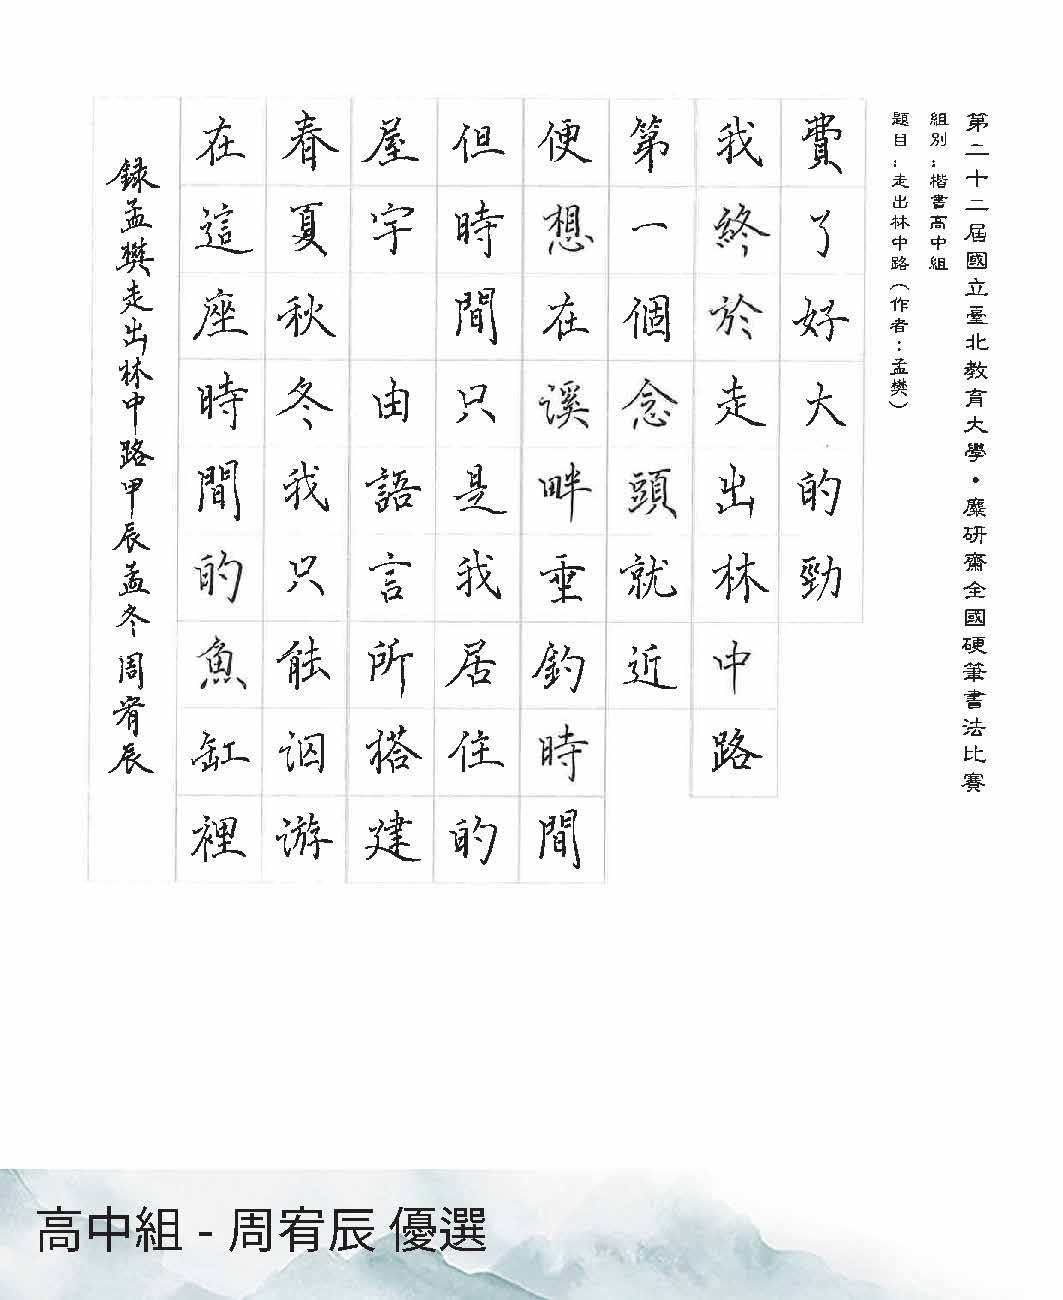 第二十二屆國立臺北教育大學•麋研齋全國硬筆書法比賽
組別：楷書高中組
題目：走出林中路（作者：孟樊）
費了好大的勁
我終於走出林中路
第一個念頭就近
便想在溪畔垂釣時間
但時間只是我居住的
屋宇　由語言所搭建
春夏秋冬我只能泅游
在這座時間的魚缸裡
錄孟樊走出林中路甲辰孟冬周宥辰
高中組 - 周宥辰 優選